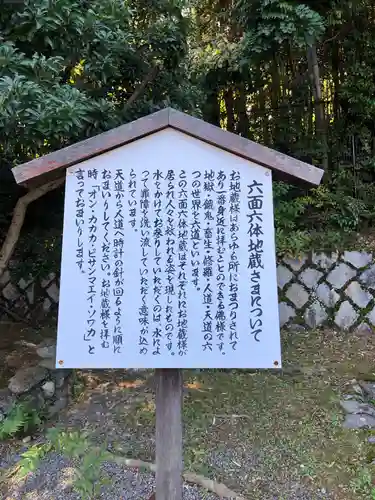 六面六体地蔵さまについて
お地蔵様はあらゆる所におまつりされて
あり一番身近に拝むことの出来る佛様です。
地獄・餓鬼・畜生・修羅・人道・天道の六
つの世界を六道といいます。
この六面六体地蔵様は六道それぞれにお地蔵様が
居られ人々を救われる姿を現しております。
水をかけてお祭りしていただくのは「水によ
って罪障を洗い流していただく」意味が込め
られています。
天道から人道へ時計の針が回るように順に
おまいりしてください。お地蔵様を拝む
時「オン・カカカ・ビサンマエイ・ソワカ」と
言っておまいりします。